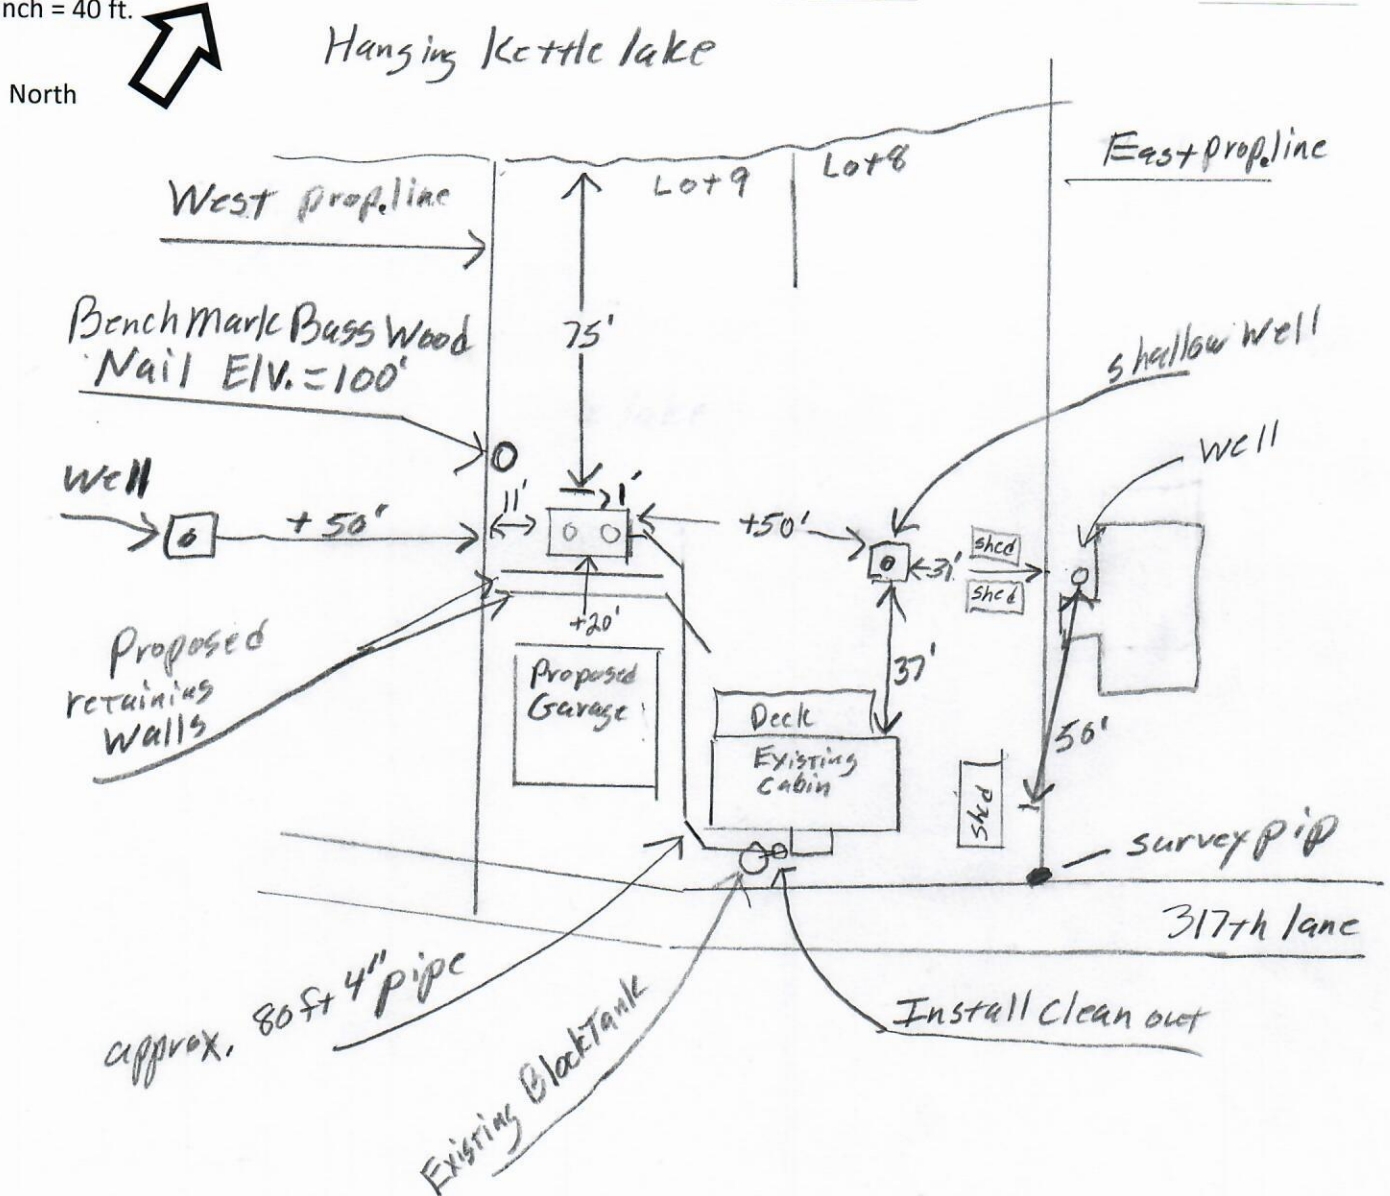 nch = 40 ft.
North
Hanging Kettle lake
Lot 9
Lot 8
East prop.line
West prop.line
75'
Benchmark Bass Wood
Nail Elv.=100'
shallow well
well
Well
+50'
11'
1'
+50'
31'
shed
shed
+20'
Proposed
retaining
walls
Proposed
Garage
37'
Deck
Existing
cabin
50'
shed
survey pip
317th lane
approx. 80ft 4" pipe
Existing Block Tank
Install Clean out